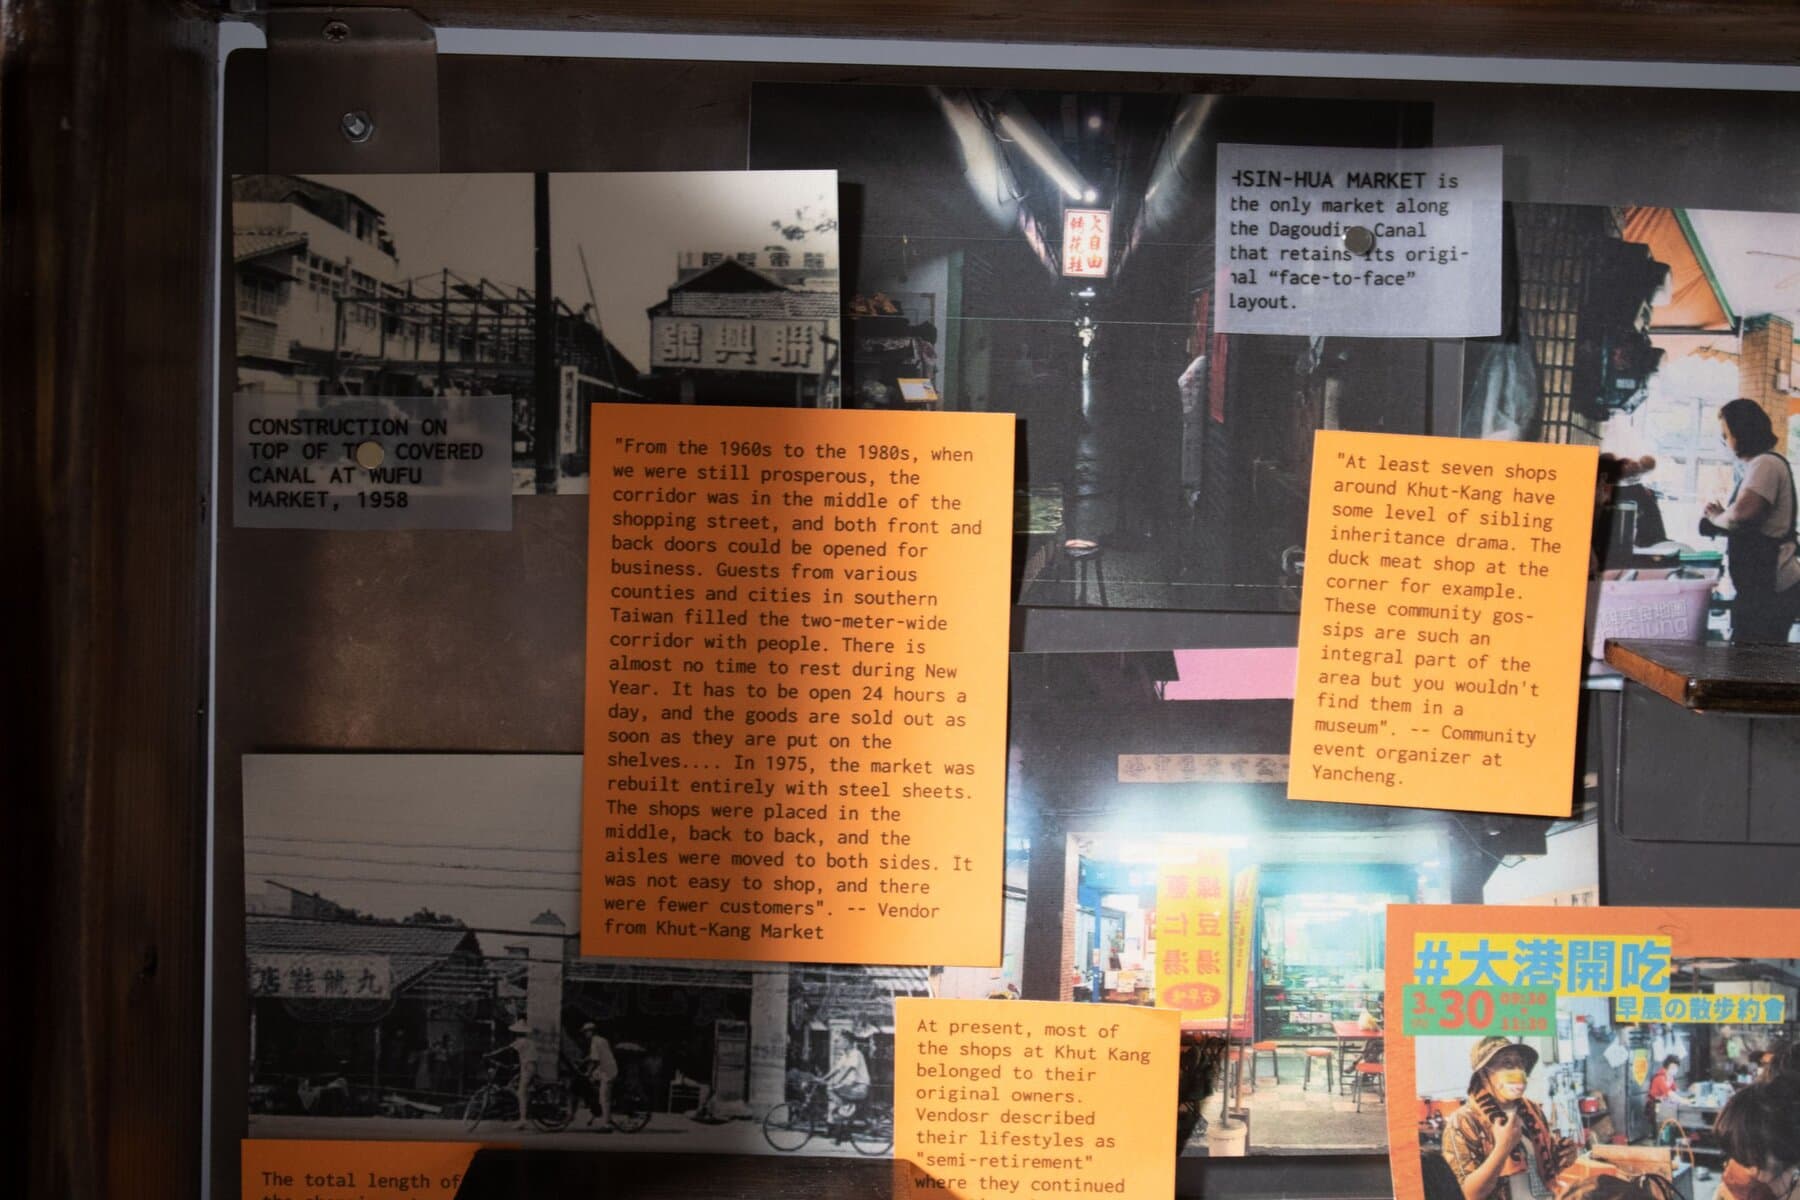 HSIN-HUA MARKET is
the only market along
the Canal
that retains its origi-
nal “face-to-face”
layout.
大自由
綉花鞋
聯興號
CONSTRUCTION ON
TOP OF COVERED
CANAL AT WUFU
MARKET, 1958
"From the 1960s to the 1980s, when
we were still prosperous, the
corridor was in the middle of the
shopping street, and both front and
back doors could be opened for
business. Guests from various
counties and cities in southern
Taiwan filled the two-meter-wide
corridor with people. There is
almost no time to rest during New
Year. It has to be open 24 hours a
day, and the goods are sold out as
soon as they are put on the
shelves.... In 1975, the market was
rebuilt entirely with steel sheets.
The shops were placed in the
middle, back to back, and the
aisles were moved to both sides. It
was not easy to shop, and there
were fewer customers". -- Vendor
from Khut-Kang Market
"At least seven shops
around Khut-Kang have
some level of sibling
inheritance drama. The
duck meat shop at the
corner for example.
These community gos-
sips are such an
integral part of the
area but you wouldn't
find them in a
museum". -- Community
event organizer at
Yancheng.
九龍鞋店
綠豆湯
薏仁湯
古早味
#大港開吃
3.30
早晨の散步約會
At present, most of
the shops at Khut Kang
belonged to their
original owners.
Vendosr described
their lifestyles as
"semi-retirement"
where they continued
The total length of